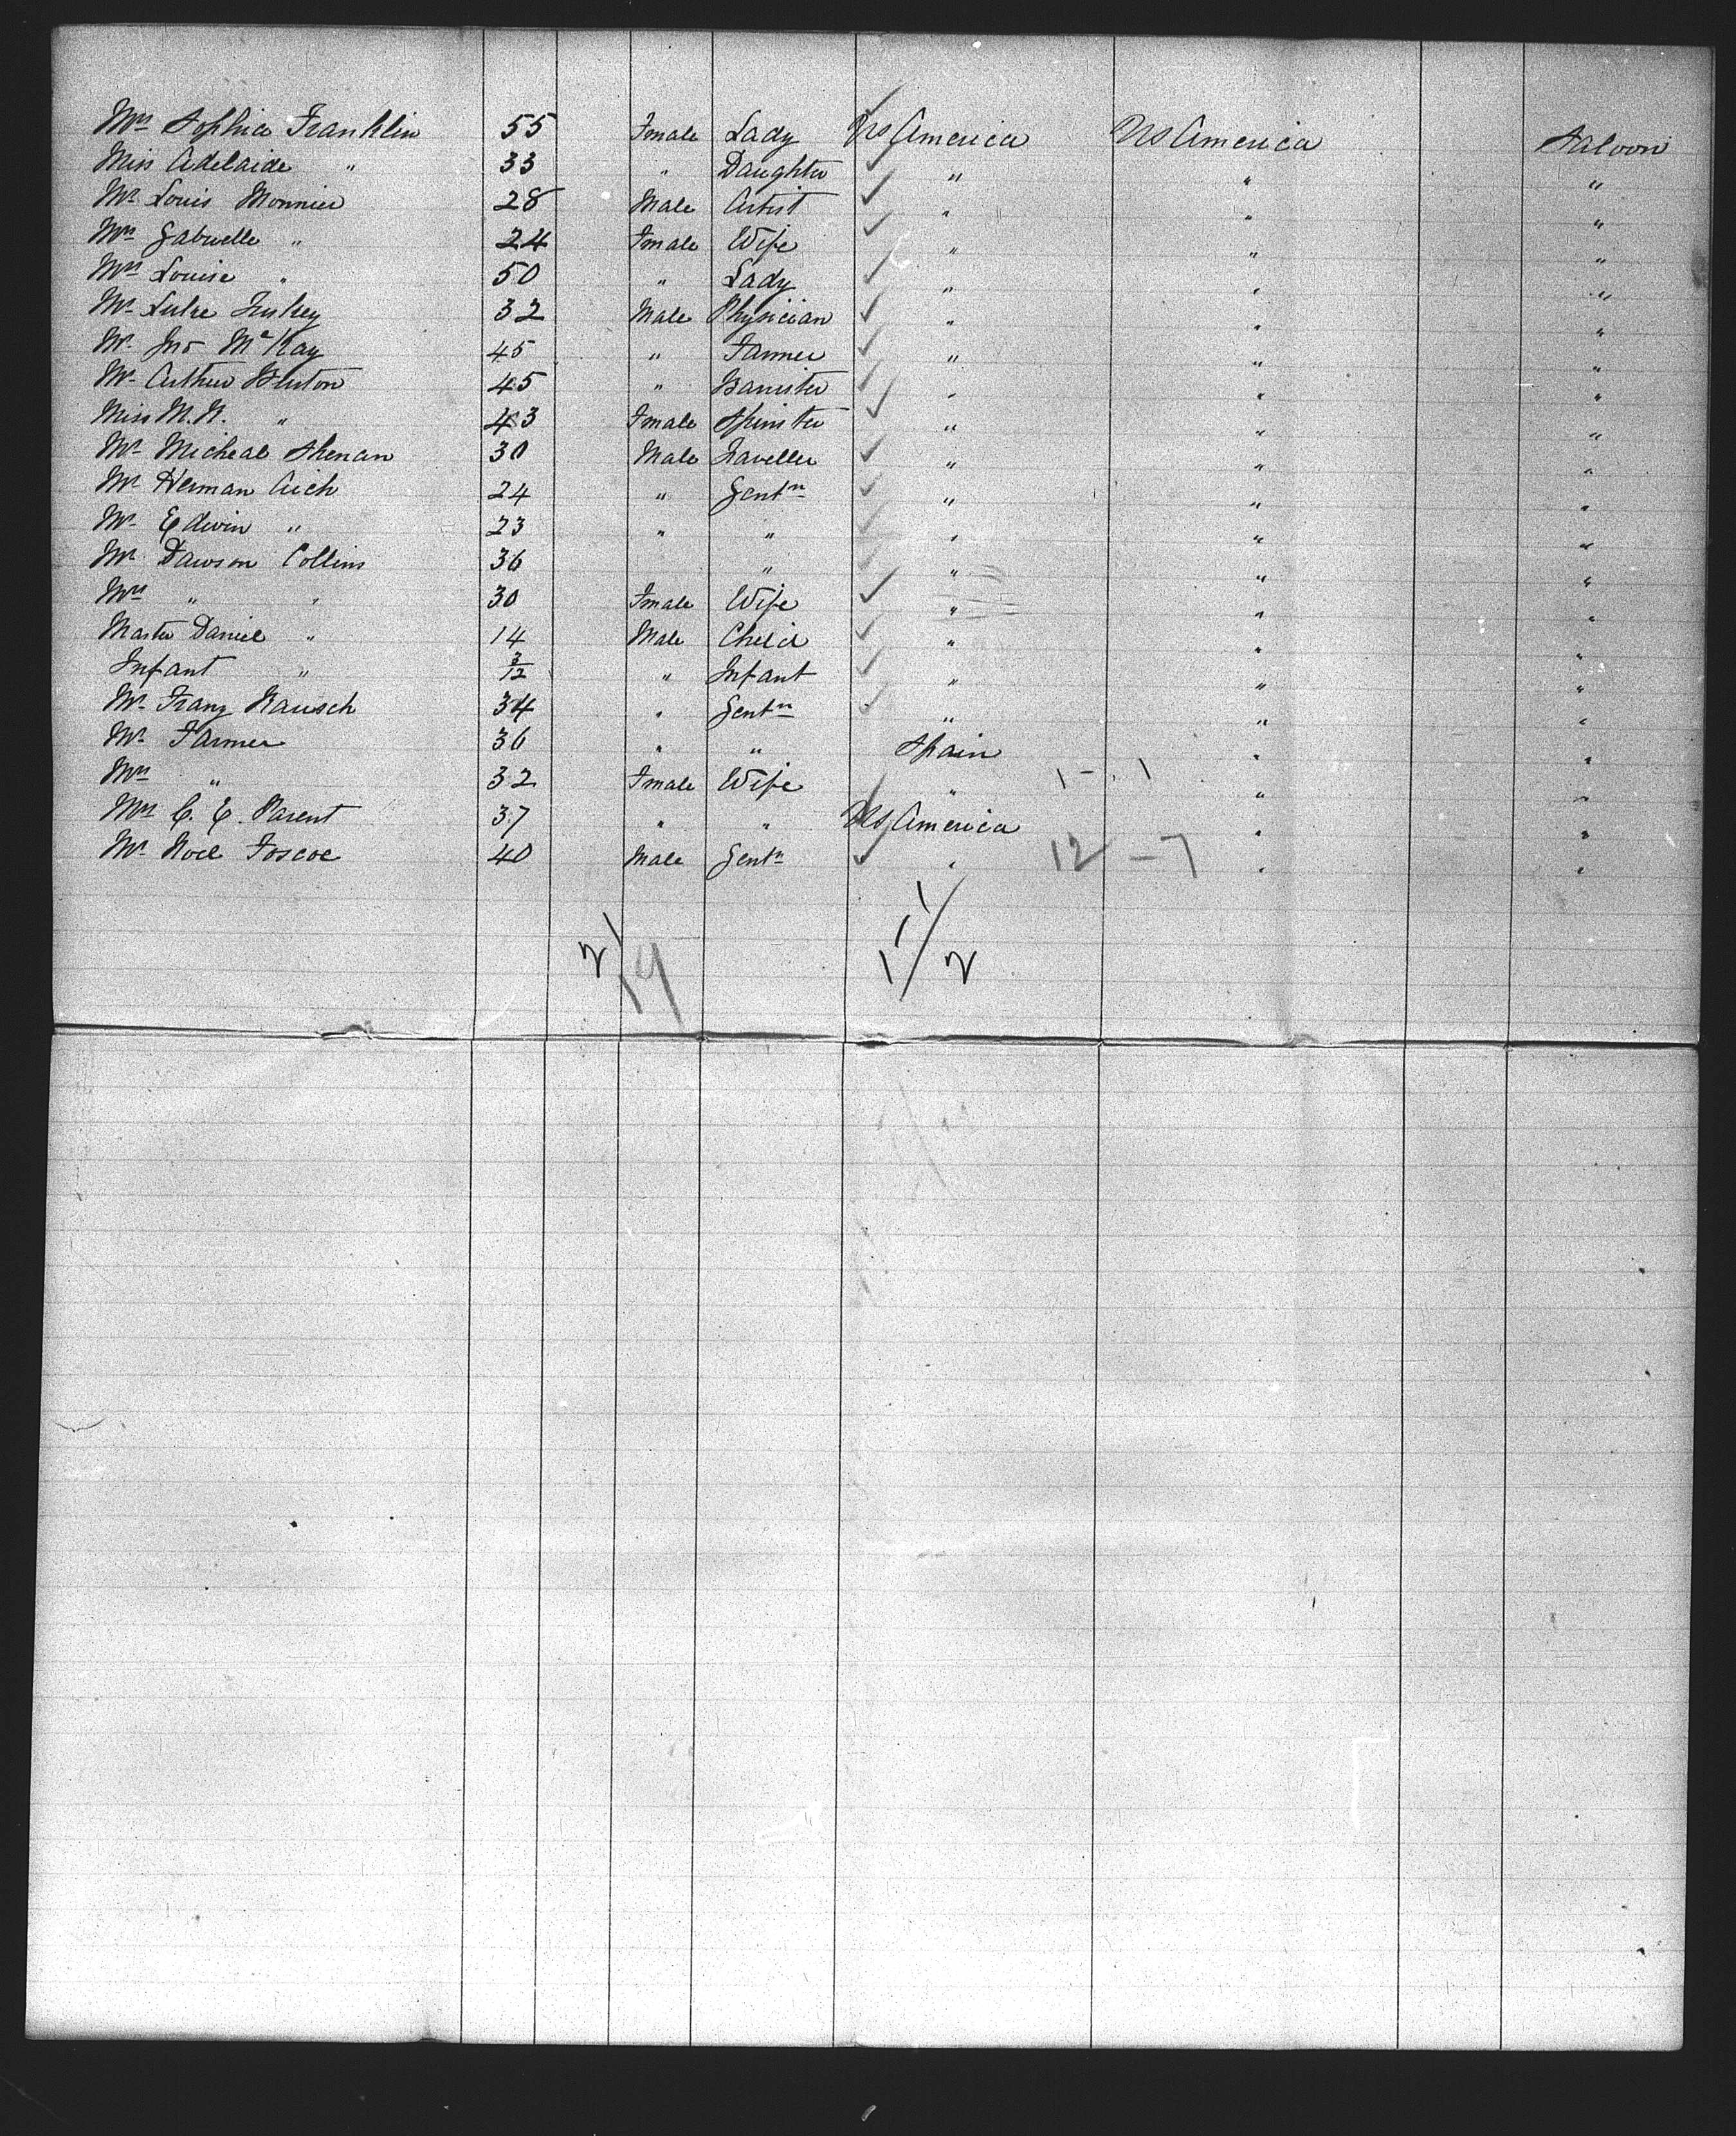 Mrs Sophia Franklin 55 Female Lady US America US America Saloon
Miss Adelaide " 33 " Daughter " " "
Mr Louis Monnier 28 Male Artist " " "
Mrs Gabrielle " 24 Female Wife " " "
Mrs Louise " 50 " Lady " " "
Mr Luke 32 Male Physician " " "
Mr Jno McKay 45 " Farmer " " "
Mr Arthur 45 " Barrister " " "
Miss M. " 43 Female Spinster " " "
Mr Micheal 30 Male Traveller " " "
Mr Herman Aich 24 " Gentn " " "
Mr Edwin " 23 " " " " "
Mr Dawson Collins 36 " " " "
Mrs " " 30 Female Wife " " "
Master Daniel " 14 Male Child " " "
Infant " 3/12 " Infant " " "
Mr Franz Rausch 34 " Gentn " " "
Mr Farmer 36 " " Spain " "
Mrs " 32 Female Wife " 1 - 1 " "
Mrs C. E. Parent 37 " " US America " "
Mr Noel Foscoe 40 Male Gentn " 12 - 7 " "
2/19 11/2